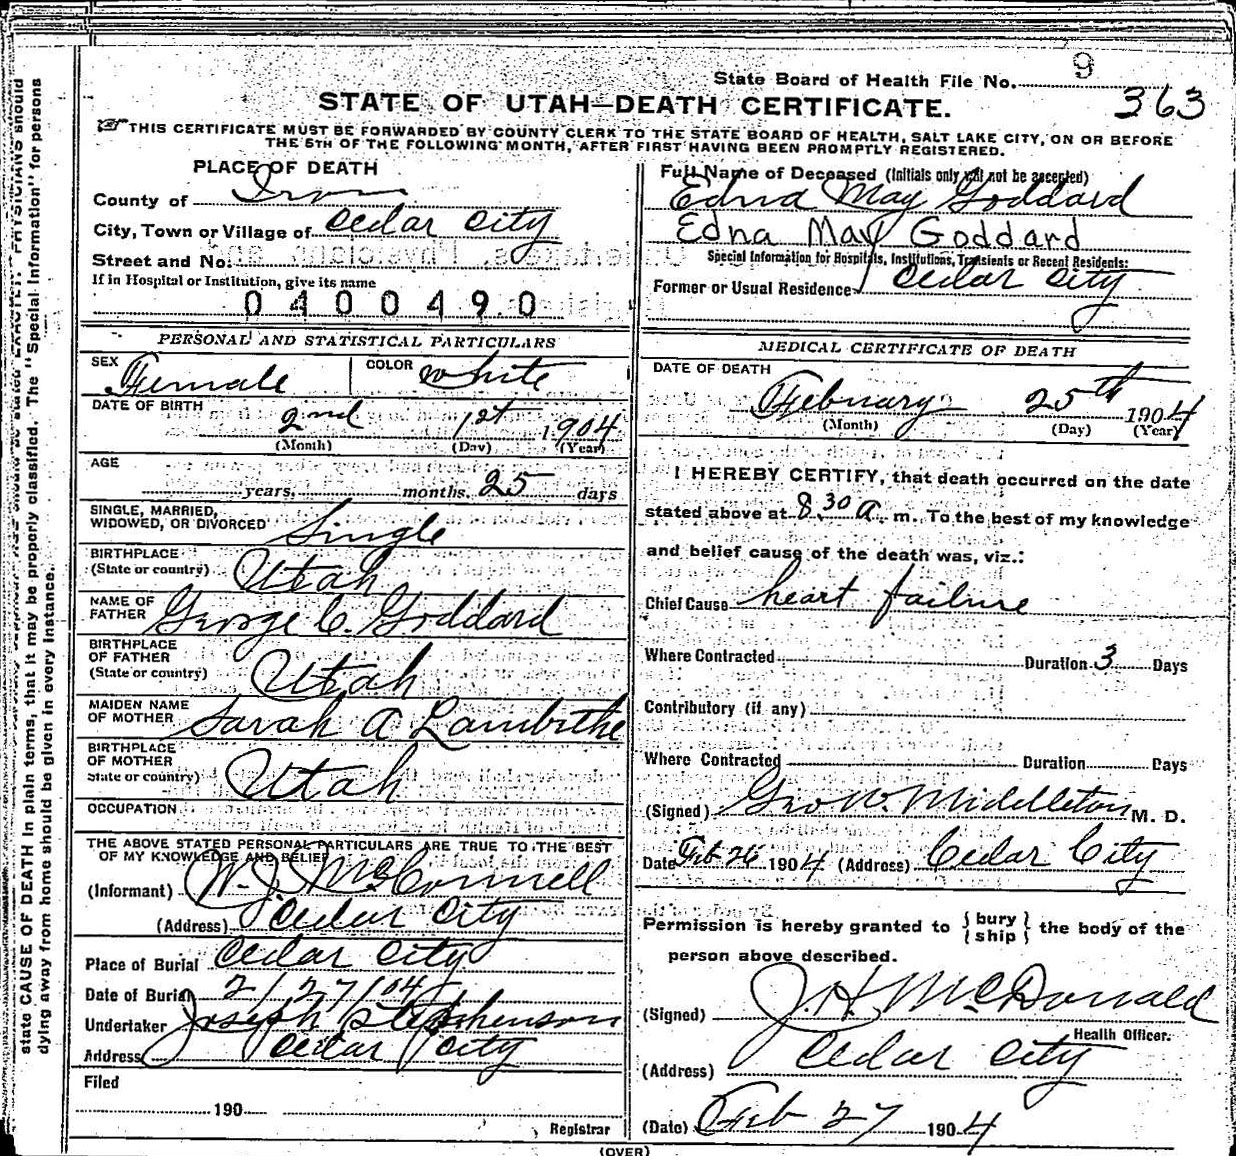 State Board of Health File No. 9
363
STATE OF UTAH—DEATH CERTIFICATE.
THIS CERTIFICATE MUST BE FORWARDED BY COUNTY CLERK TO THE STATE BOARD OF HEALTH, SALT LAKE CITY, ON OR BEFORE
THE 5TH OF THE FOLLOWING MONTH, AFTER FIRST HAVING BEEN PROMPTLY REGISTERED.
PLACE OF DEATH
County of Iron
City, Town or Village of Cedar City
Street and No.
If in Hospital or Institution, give its name
0400490
Full Name of Deceased (Initials only will not be accepted)
Edna May Goddard
Edna May Goddard
Special Information for Hospitals, Institutions, Transients or Recent Residents:
Former or Usual Residence Cedar City
PERSONAL AND STATISTICAL PARTICULARS
SEX Female COLOR White
DATE OF BIRTH
2nd 1st 1904
(Month) (Day) (Year)
AGE
years, months, 25 days
SINGLE, MARRIED,
WIDOWED, OR DIVORCED Single
BIRTHPLACE
(State or country) Utah
NAME OF
FATHER George C. Goddard
BIRTHPLACE
OF FATHER
(State or country) Utah
MAIDEN NAME
OF MOTHER Sarah A Lambithe
BIRTHPLACE
OF MOTHER
State or country) Utah
OCCUPATION
THE ABOVE STATED PERSONAL PARTICULARS ARE TRUE TO THE BEST
OF MY KNOWLEDGE AND BELIEF
(Informant) W. J. McConnell
(Address) Cedar City
Place of Burial Cedar City
Date of Burial 2/27/04
Undertaker Joseph Stephenson
Address Cedar City
Filed
190
Registrar
MEDICAL CERTIFICATE OF DEATH
DATE OF DEATH
February 25th 1904
(Month) (Day) (Year)
I HEREBY CERTIFY, that death occurred on the date
stated above at 8.30 a. m. To the best of my knowledge
and belief cause of the death was, viz.:
Chief Cause heart failure
Where Contracted Duration 3 Days
Contributory (if any)
Where Contracted Duration Days
(Signed) Geo W. Middleton M. D.
Date Feb 26 1904 (Address) Cedar City
Permission is hereby granted to {bury
ship} the body of the
person above described.
(Signed) J. H. McDonald
Health Officer.
(Address) Cedar City
(Date) Feb 27 1904
(OVER)
state CAUSE OF DEATH in plain terms, that it may be properly classified. The "Special Information" for persons
dying away from home should be given in every instance.